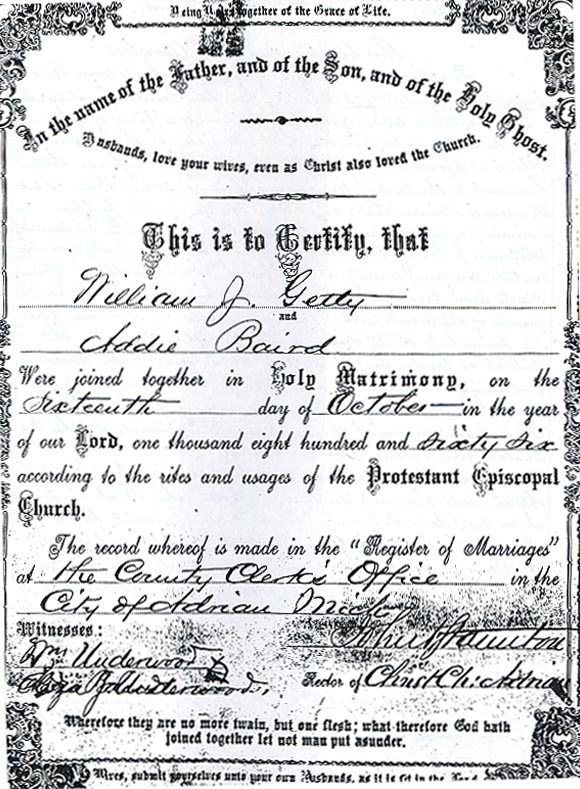 Being Heirs together of the Grace of Life.
In the name of the Father, and of the Son, and of the Holy Ghost.
Husbands, love your wives, even as Christ also loved the Church.
This is to Certify, that
William J. Getty
and
Addie Baird
Were joined together in Holy Matrimony, on the
Sixteenth day of October in the year
of our Lord, one thousand eight hundred and sixty six
according to the rites and usages of the Protestant Episcopal
Church.
The record whereof is made in the "Register of Marriages"
at the County Clerk's Office in the
City of Adrian Mich
Witnesses:
Wm Underwood
Rector of Christ Ch: Adrian
Wherefore they are no more twain, but one flesh; what therefore God hath
joined together let not man put asunder.
Wives, submit yourselves unto your own Husbands, as it is fit in the Lord